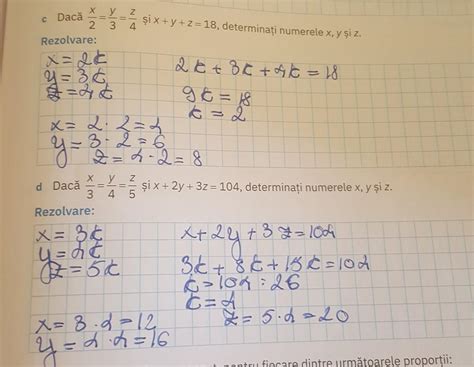 c Dacă x/2 = y/3 = z/4 și x + y + z = 18, determinați numerele x, y și z.
Rezolvare:
x = 2k
y = 3k
z = 4k
2k + 3k + 4k = 18
9k = 18
k = 2
x = 2 · 2 = 4
y = 3 · 2 = 6
z = 4 · 2 = 8
d Dacă x/3 = y/4 = z/5 și x + 2y + 3z = 104, determinați numerele x, y și z.
Rezolvare:
x = 3k
y = 4k
z = 5k
x + 2y + 3z = 104
3k + 8k + 15k = 104
k = 104 : 26
k = 4
x = 3 · 4 = 12
y = 4 · 4 = 16
z = 5 · 4 = 20
pentru fiecare dintre următoarele proporții: